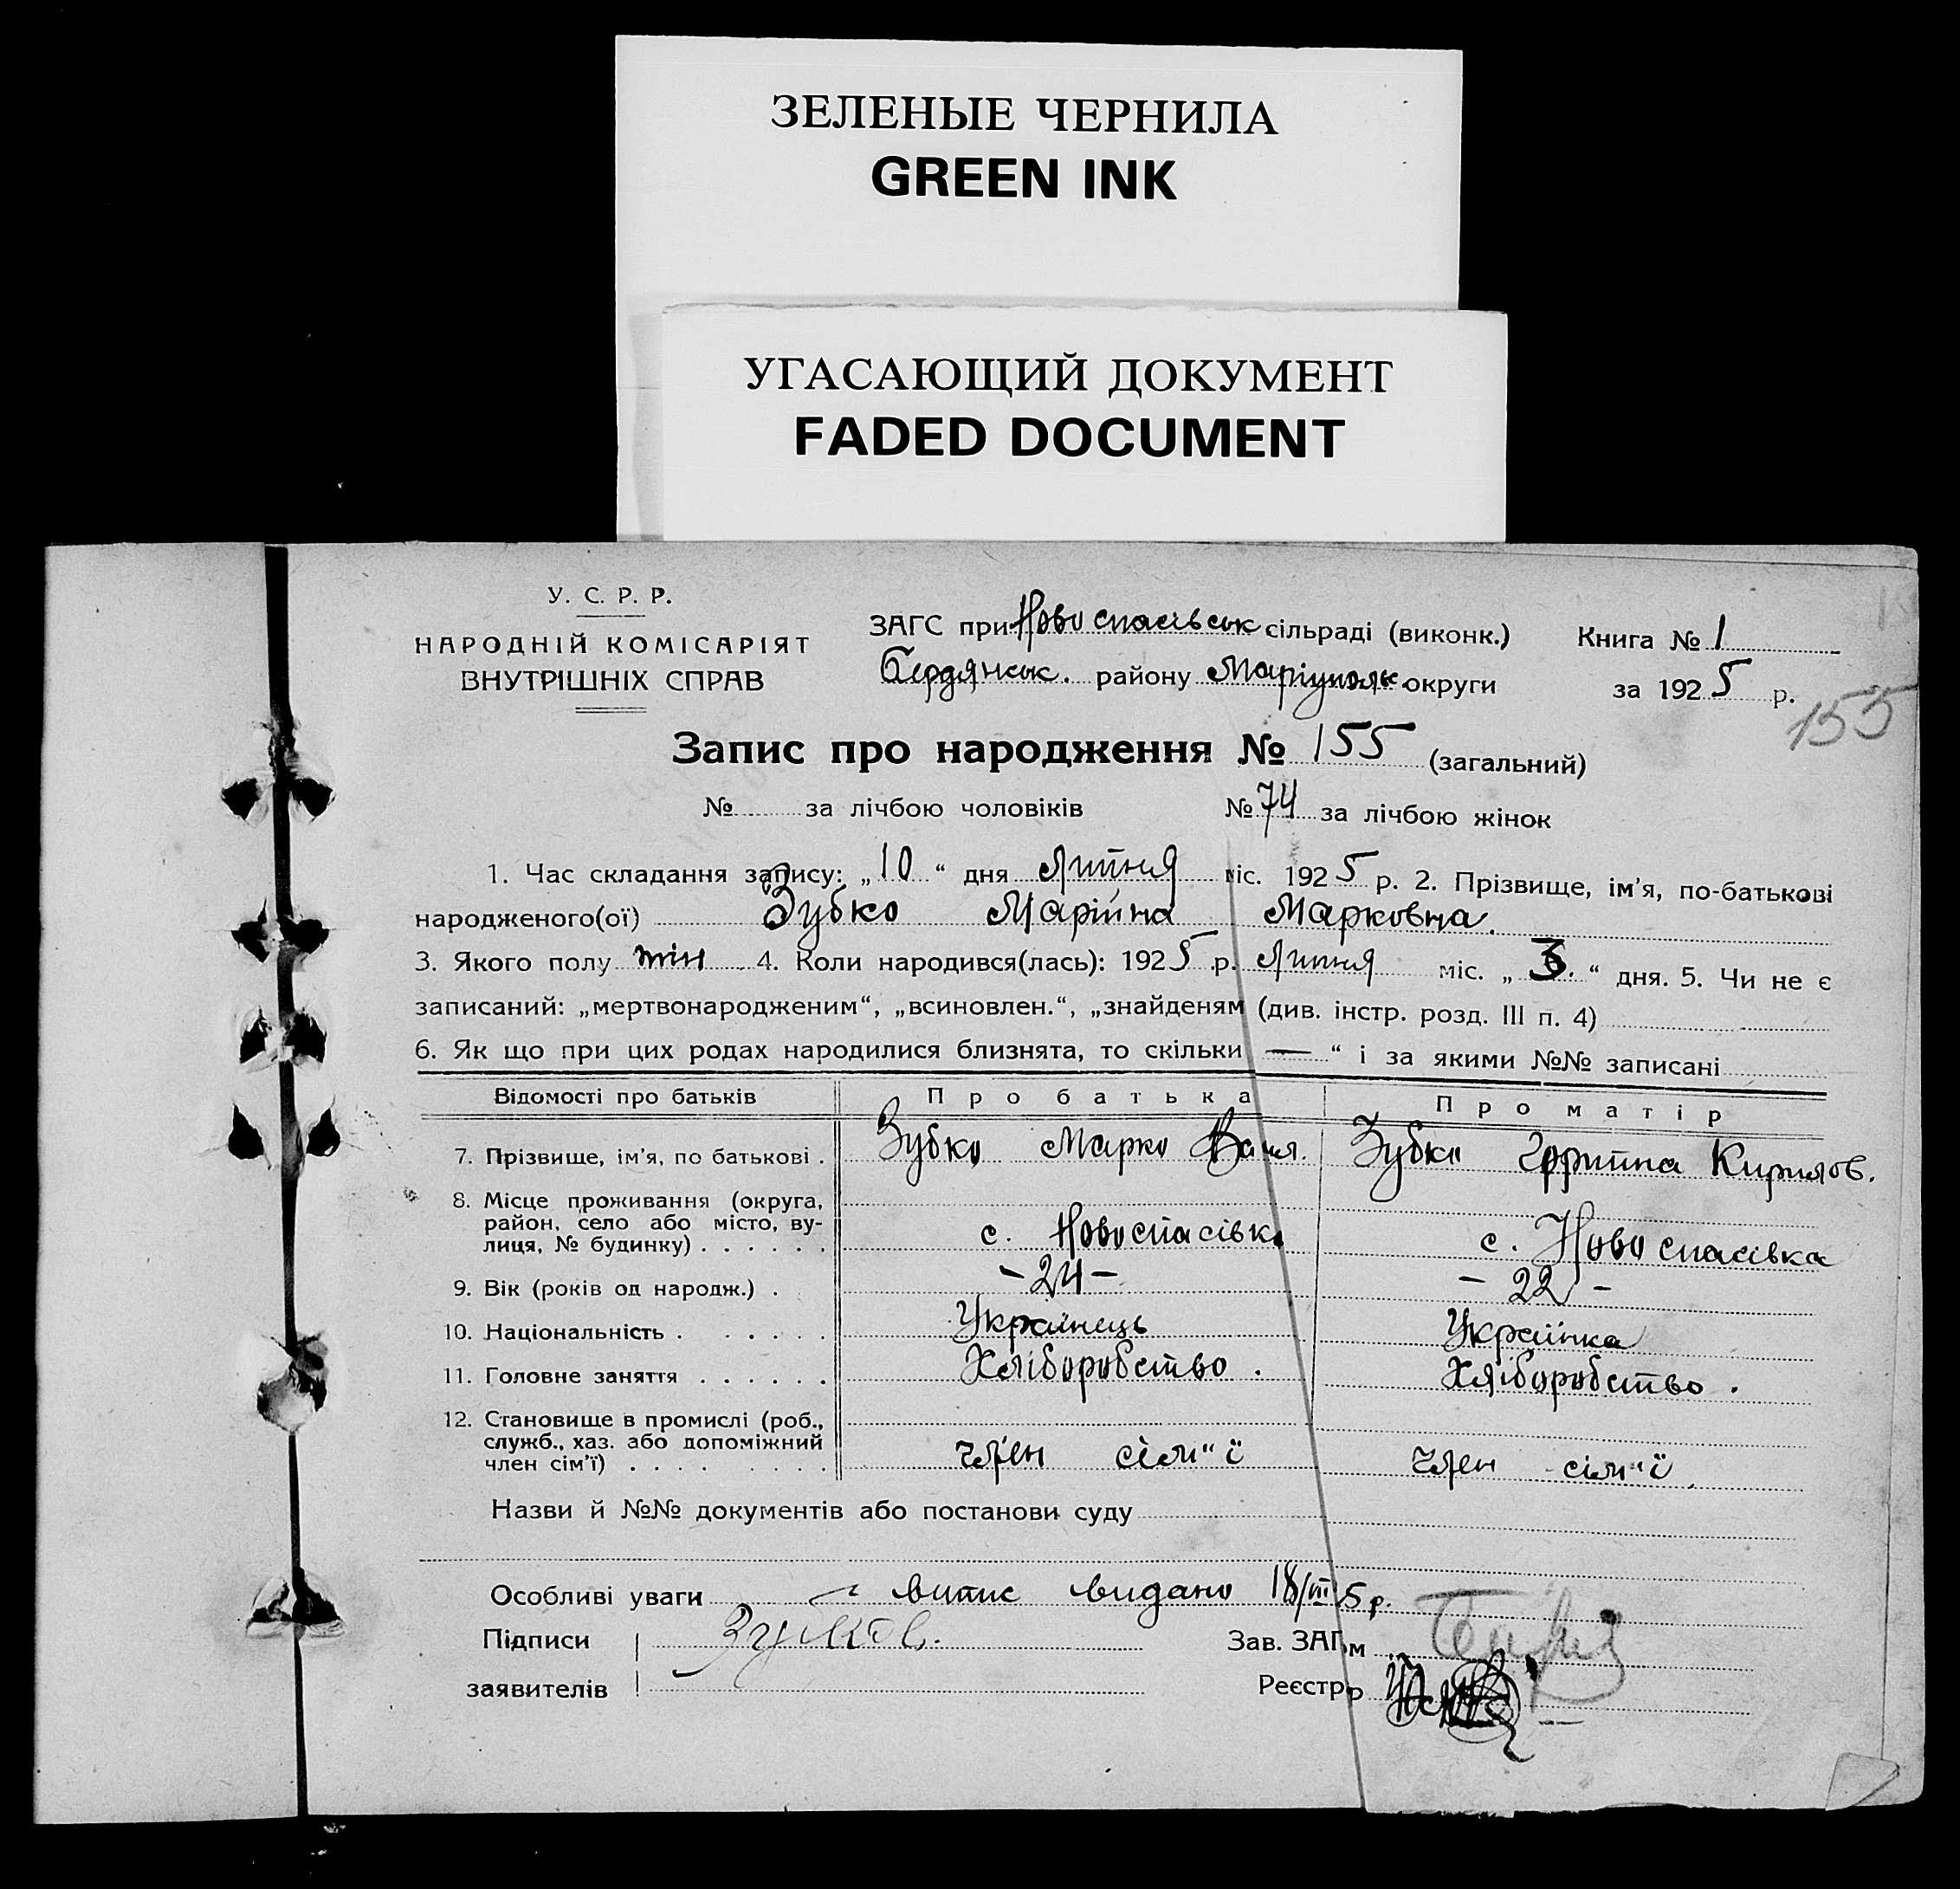 ЗЕЛЕНЫЕ ЧЕРНИЛА
GREEN INK
УГАСАЮЩИЙ ДОКУМЕНТ
FADED DOCUMENT
У. С. Р. Р.
НАРОДНІЙ КОМІСАРІЯТ
ВНУТРІШНІХ СПРАВ
ЗАГС при Новоспасівськ сільраді (виконк.) Книга № 1
Бердянськ. району Маріупольс. округи за 1925 р.
155
Запис про народження № 155 (загальний)
№ за лічбою чоловіків № 74 за лічбою жінок
1. Час складання запису: „10“ дня Липня міс. 1925 р. 2. Прізвище, ім’я, по-батькові
народженого(ої) Зубко Марійна Марковна.
3. Якого полу жін. 4. Коли народився(лась): 1925 р. Липня міс. „3.“ дня. 5. Чи не є
записаний: „мертвонародженим“, „всиновлен.“, „знайденям (див. інстр. розд. III п. 4)
6. Як що при цих родах народилися близнята, то скільки — “ і за якими №№ записані
Відомості про батьків Про батька Про матір
7. Прізвище, ім’я, по батькові . Зубко Марко Зубко Кирилов.
8. Місце проживання (округа,
район, село або місто, ву-
лиця, № будинку) . . . . . . с. Новоспасівка с. Новоспасівка
9. Вік (років од народж.) . - 24 - - 22 -
10. Національність . . . . . . Українець Українка
11. Головне заняття . . . . . . Хліборобство . Хліборобство .
12. Становище в промислі (роб.,
служб., хаз. або допоміжний
член сім’ї) . . . . . . . . член сім"ї член сім"ї
Назви й №№ документів або постанови суду
Особливі уваги - випис видано 18/VII 5 р.
Підписи Зубков. Зав. ЗАГ м
заявителів Реєстр р